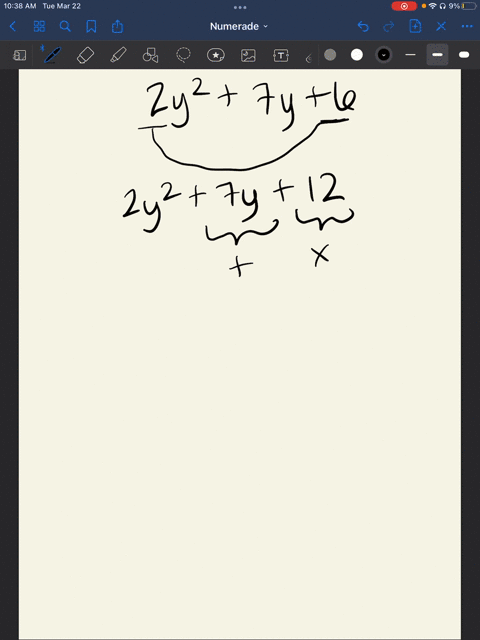 10:38 AM Tue Mar 22
9%
Numerade
T
2y² + 7y + 6
2y² + 7y + 12
+ x